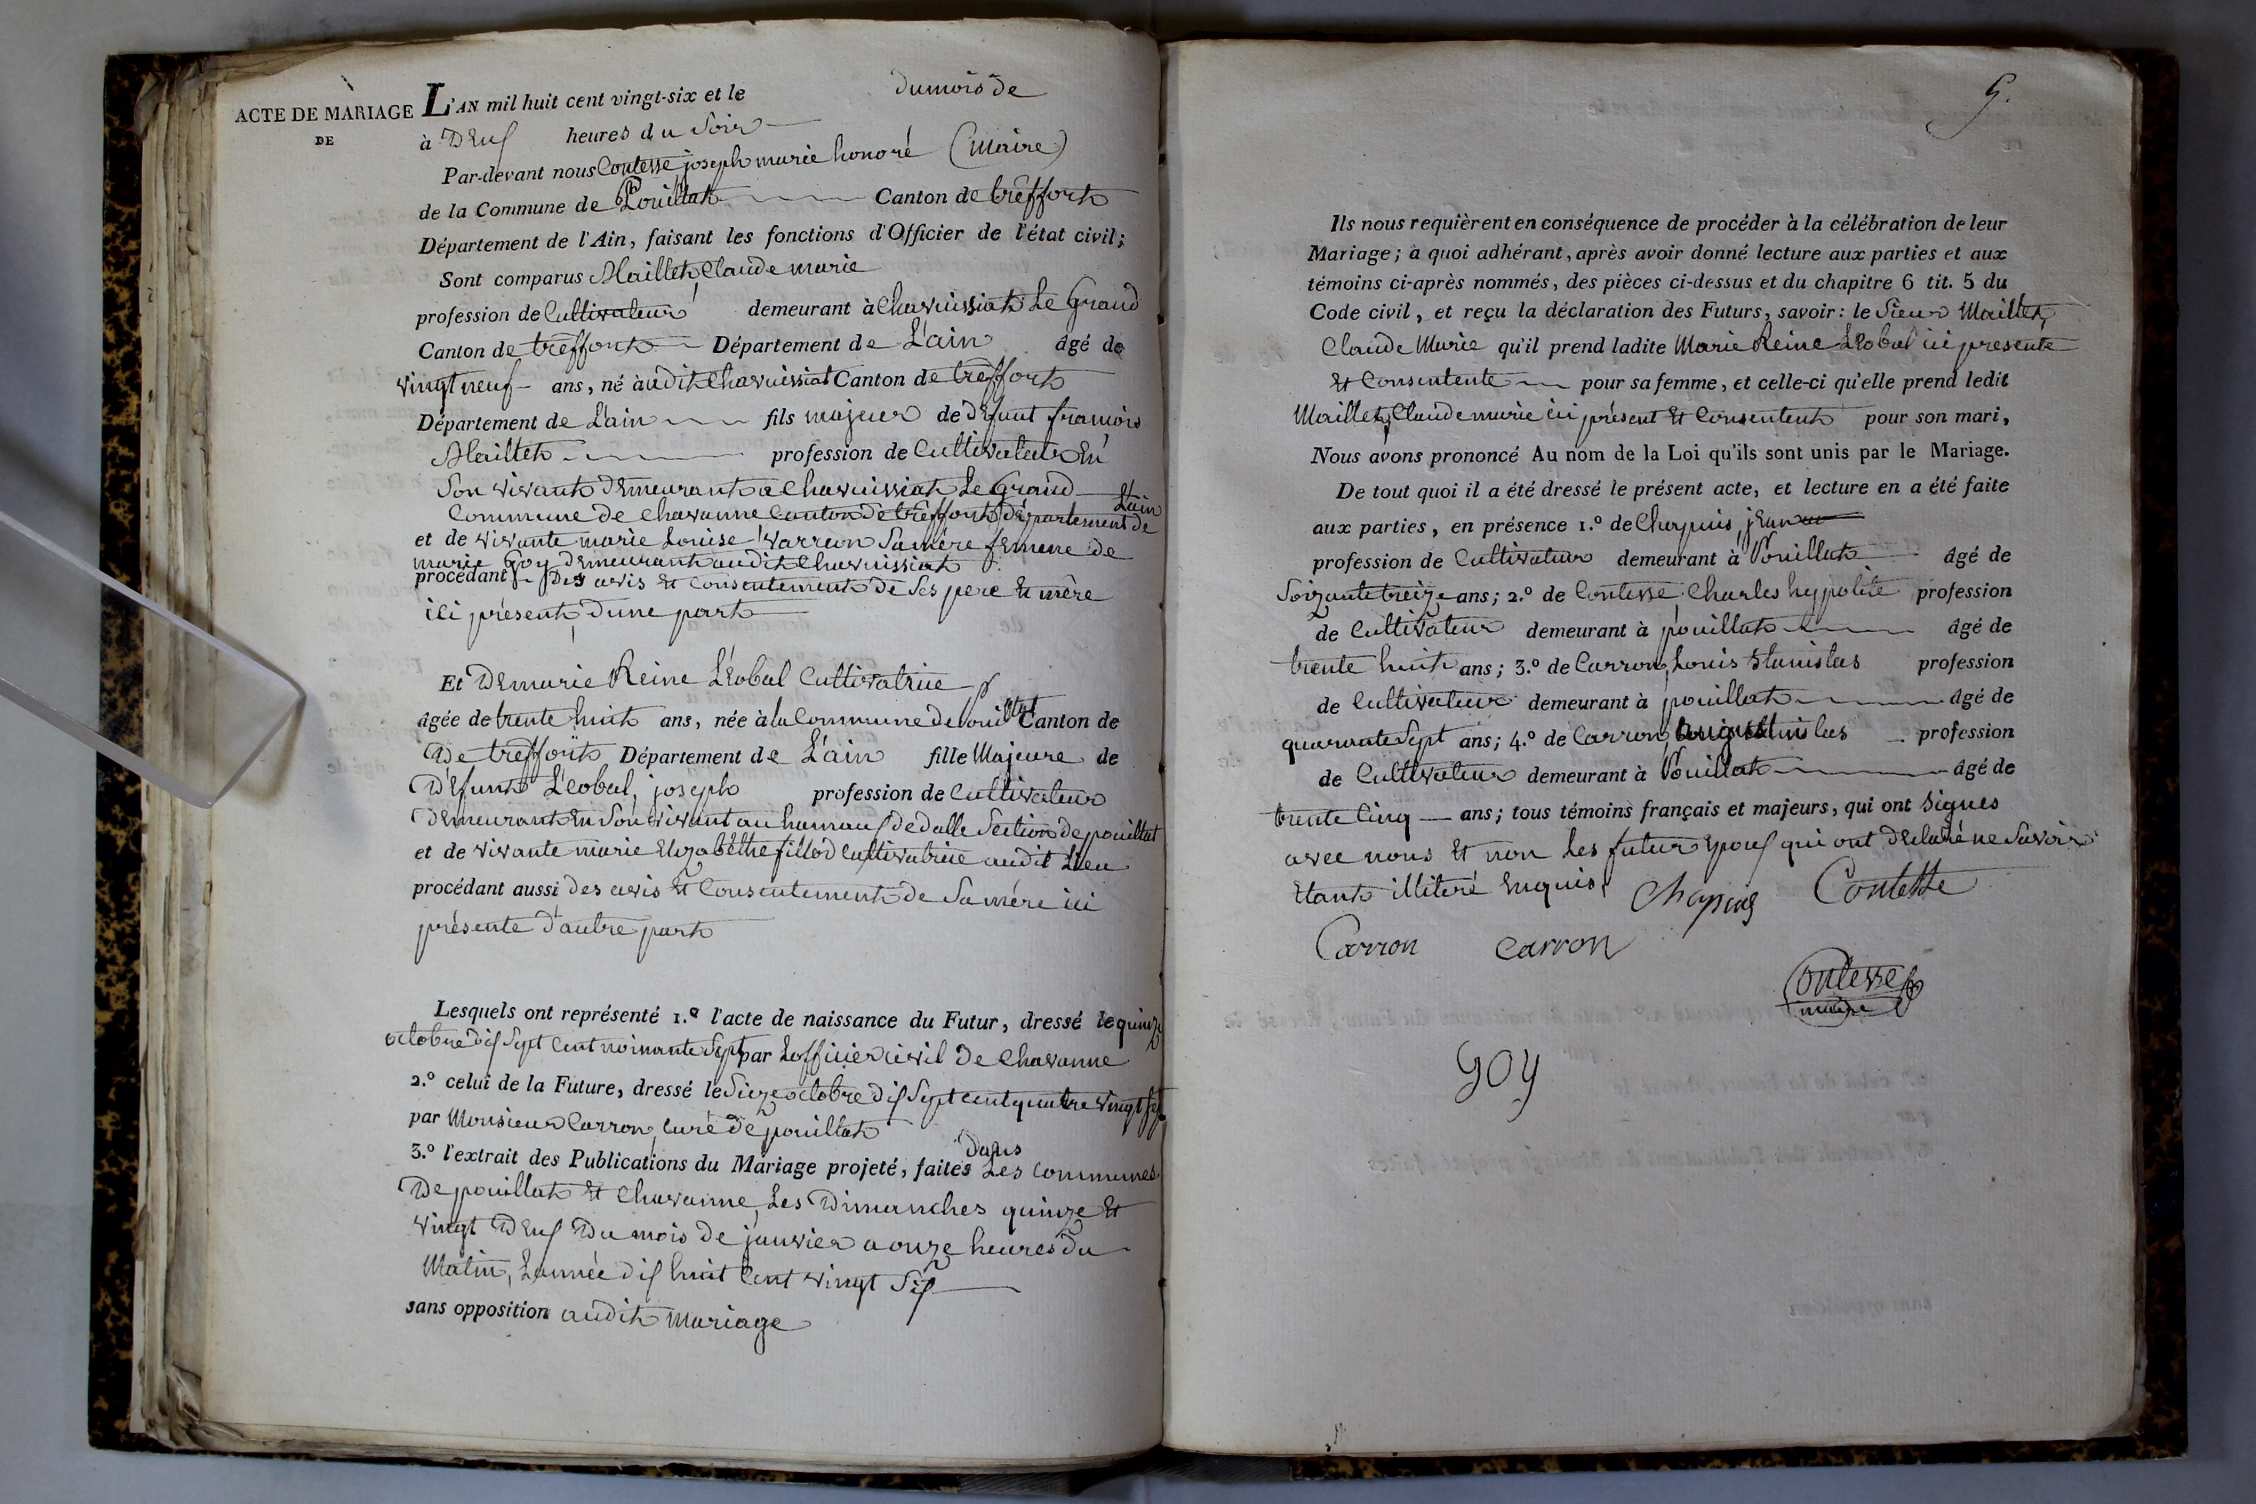 ACTE DE MARIAGE
DE
L'AN mil huit cent vingt-six et le du mois de
à Deux heures du Soir
Par-devant nous Contesse joseph marie honoré (Maire)
de la Commune de Pouillat Canton de trêffort
Département de l'Ain, faisant les fonctions d'Officier de l'état civil;
Sont comparus Maillet, Claude marie
profession de Cultivateur demeurant à Chavuissiat Le Grand
Canton de trêffort Département de L'ain âgé de
vingt neuf ans, né audit Chavuissiat Canton de trêffort
Département de L'ain fils majeur de défunt francois
Maillet profession de Cultivateur En
Son vivant demeurant a Chavuissiat Le Grand
Commune de Chavanne Canton de trêffort, département de L'ain
et de vivante marie Louise Varreon Sa mére femme de
marie Goy demeurant audit Chavuissiat
procédant Des avis et Consentement de Ses pere et mère
ici présent, d'une part
Et De marie Reine Léobal Cultivatrice
âgée de trente huit ans, née à la Commune de Pouillat Canton de
De trêffort Département de L'ain fille Majeure de
Défunt Léobal, joseph profession de Cultivateur
Demeurant En Son vivant au hamaux de dalle Section de pouillat
et de vivante marie Elizabéthe fillod Cultivatrice audit Lieu
procédant aussi des avis et Consentement de Sa mére ici
présente d'autre part
Lesquels ont représenté 1.º l'acte de naissance du Futur, dressé le quinze
octobre dix Sept Cent noinante Sept par Lofficier civil de Chavanne
2.º celui de la Future, dressé le Sieze octobre dix Sept cent quatre vingt Sept
par Monsieur Carron, curé de pouillat
3.º l'extrait des Publications du Mariage projeté, faites Dans Les Communes
De pouillat et Chavanne, Les Dimanches quinze et
vingt Deux Du mois de janvier a onze heures du
Matin, L'année dix huit Cent vingt Six
sans opposition audit Mariage
5.
Ils nous requièrent en conséquence de procéder à la célébration de leur
Mariage; à quoi adhérant, après avoir donné lecture aux parties et aux
témoins ci-après nommés, des pièces ci-dessus et du chapitre 6 tit. 5 du
Code civil, et reçu la déclaration des Futurs, savoir: le Sieur Maillet,
Claude Marie qu'il prend ladite Marie Reine Léobal ici presente
et Consentente pour sa femme, et celle-ci qu'elle prend ledit
Maillet, Claude marie ici présent et Consentent pour son mari,
Nous avons prononcé Au nom de la Loi qu'ils sont unis par le Mariage.
De tout quoi il a été dressé le présent acte, et lecture en a été faite
aux parties, en présence 1.º de Chapuis, jean
profession de Cultivateur demeurant à Pouillat âgé de
Soizante treize ans; 2.º de Contesse Charles hypolite profession
de Cultivateur demeurant à pouillat âgé de
trente huit ans; 3.º de Carron, Louis Stanislas profession
de Cultivateur demeurant à pouillat âgé de
quarante Sept ans; 4.º de Carron profession
de Cultivateur demeurant à Pouillat âgé de
trente Cinq ans; tous témoins français et majeurs, qui ont Signés
avec nous et non Les futur Epoux qui ont declaré ne Savoir
Etant illiteré Enquis,
Chapuis Contesse
Carron Carron
Contesse
maire
Goy